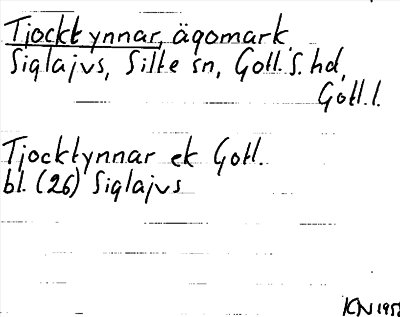 Tjocktynnar, ägomark
Siglajvs, Silte sn, Gotl. S. hd,
Gotl. l.
Tjocktynnar ek Gotl.
bl. (26) Siglajvs
KN 1958